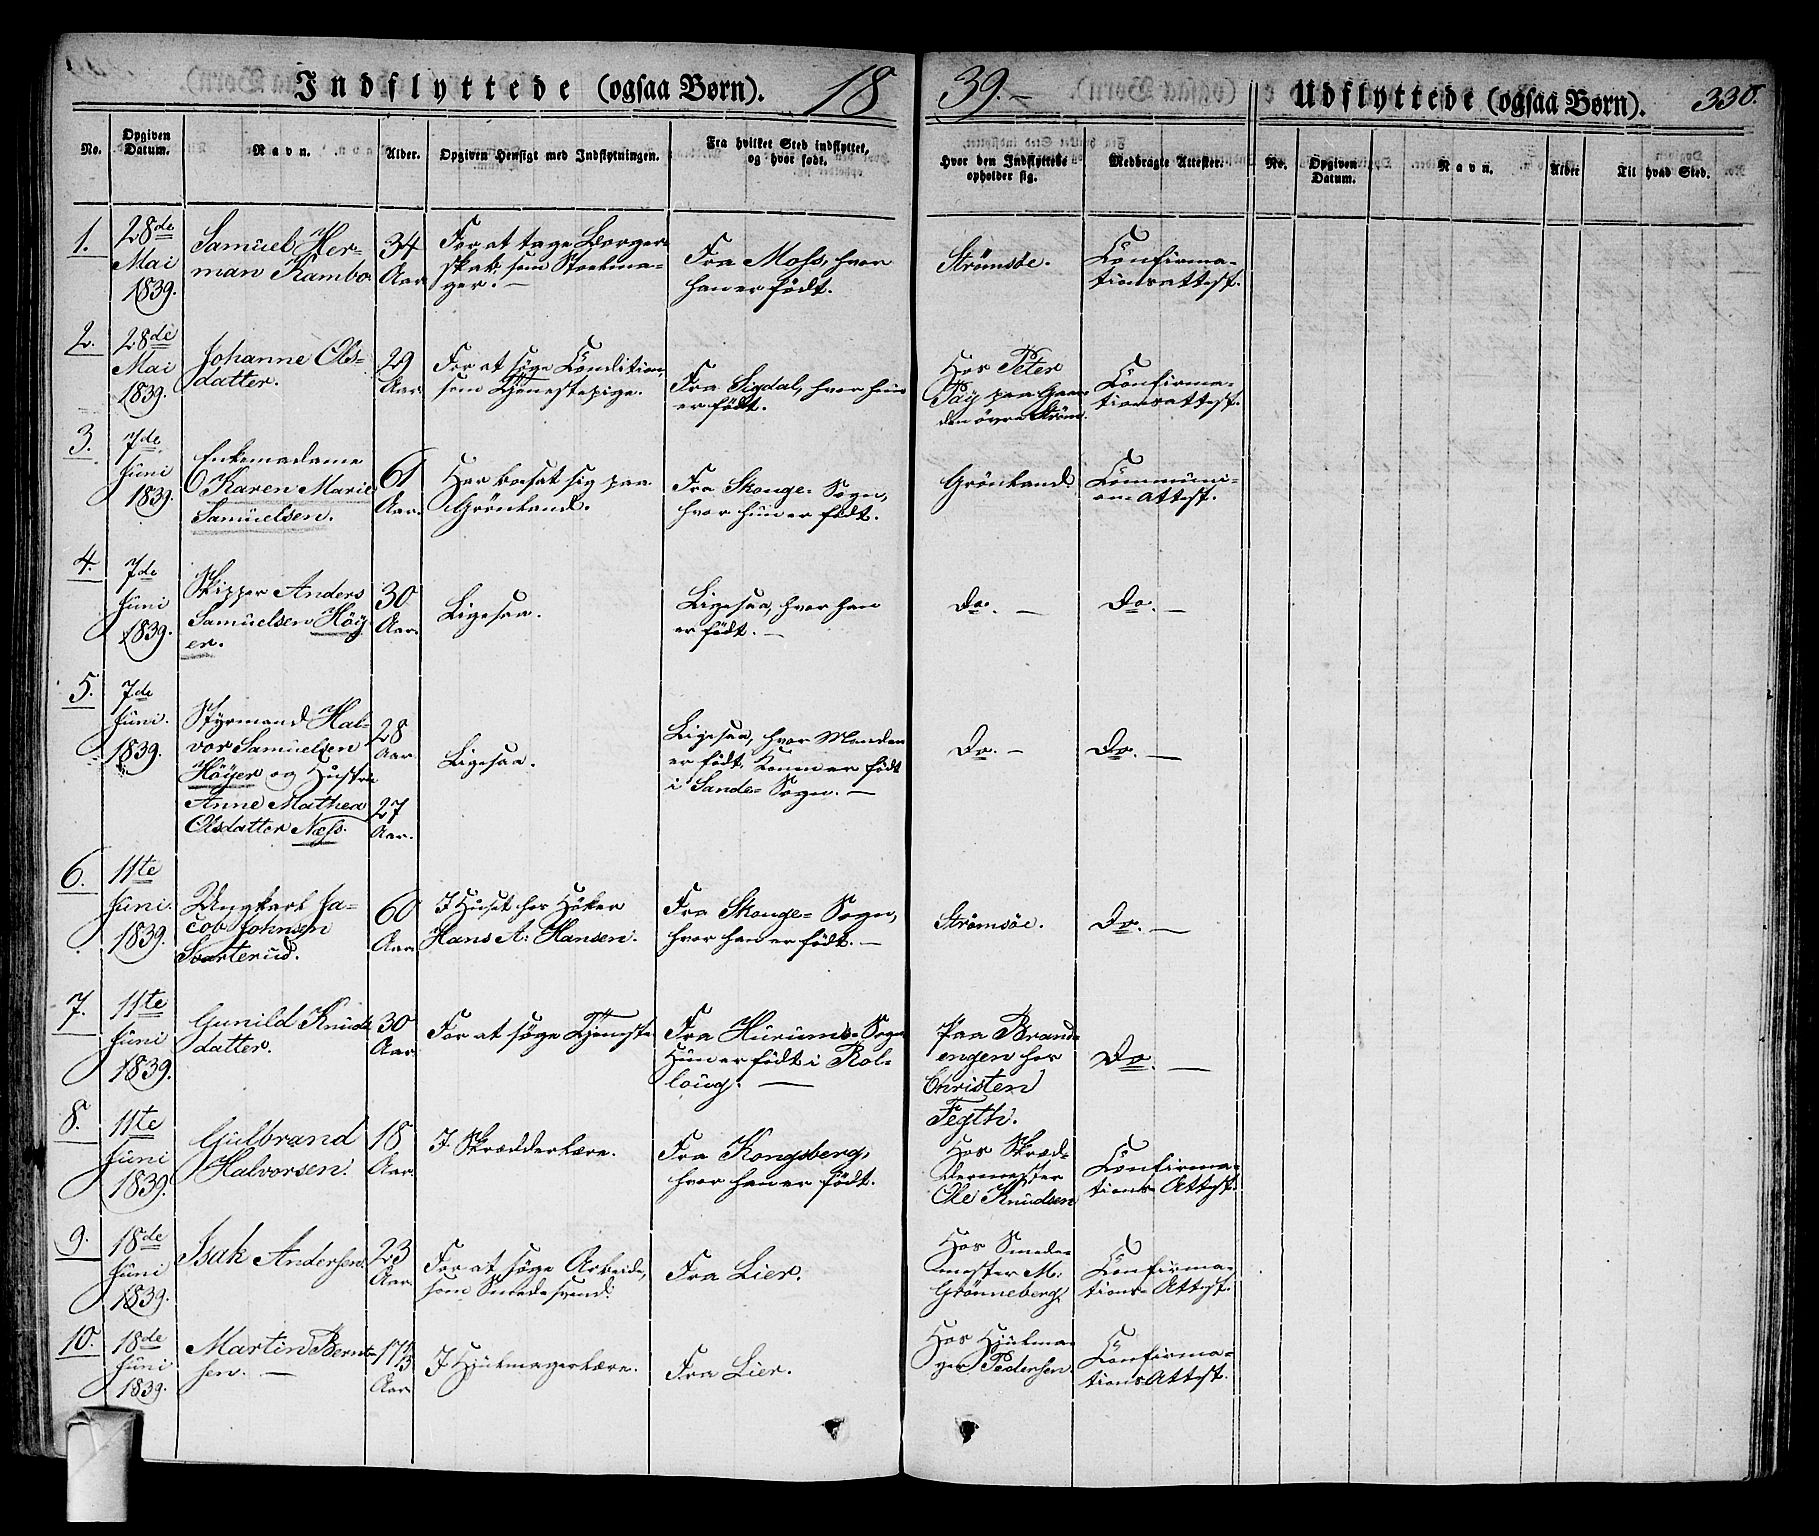 Indflyttede (ogsaa Børn). 18
39.- Udflyttede (ogsaa Børn). 330.
No. Opgiven Datum. Navn. Alder. Opgiven Hensigt med Indflytningen. Fra hvilket Sted indflyttet, og hvor født. Hvor den Indflyttede opholder sig. Medbragte Attester. No. Opgiven Datum. Navn. Alder Til hvad Sted.
1. 28de Mai 1839. Samuel Herman Kambo. 34 Aar For at tage Borgerskab som Stoelmager. — Fra Moss, hvor han er födt. Strømsöe. Confirmationsattest.
2. 28de Mai 1839. Johanne Olsdatter. 29 Aar. For at söge Condition, som Tjenestepige. Fra Sigdal, hvor hun er födt. Hos Peter Paa Gaarden övre Ström. Confirmationsattest.
3. 7de Juni 1839. Enkemadame Karen Marie Samuelsen. 61 Aar. Har bosat sig paa Grönland. Fra Skouge-Sogn, hvor hun er födt. Grönland. Communionattest.
4. 7de Juni 1839. Skipper Anders Samuelsen Höyer. 30 Aar. Ligesaa. Ligesaa, hvor han er födt. — Do. — Do. —
5. 7de Juni. 1839. Styrmand Halvor Samuelsen Höyer og Hustru Anne Mathea Olsdatter Næss. 28 Aar 27 Aar. Ligesaa. Ligesaa, hvor Manden er födt, Konen er födt i Sande-Sogn. — Do. — Do. —
6. 11te Juni. 1839. Ungkarl Jacob Johnsen Svarterud. 60 Aar I Huset hos Höker Hans A: Hansen. Fra Skouge-Sogn, hvor han er födt. — Strømsöe. Do. —
7. 11te Juni 1839. Gunild Knudsdatter. 30 Aar For at söge Tjeneste. Fra Hurums-Sogn Hun er födt i Rolloug. — Paa Brandengen hos Christen Fegth. Do. —
8. 11te Juni 1839. Gulbrand Halvorsen. 18 Aar. I Skrædderlære. Fra Kongsberg, hvor han er födt. Hos Skræddermester Ole Knudsen Confirmations-Attest.
9. 18de Juni 1839. Isak Andersen. 23 Aar. For at söge Arbeide, som Smedesvend. Fra Lier. Hos Smedemester M: Grönneberg. Confirmations-Attest.
10. 18de Juni 1839. Martin Berntsen. — 17 1/3 Aar I Hjulmagerlære. Fra Lier. Hos Hjulmager Pedersen. ConfirmationsAttest.